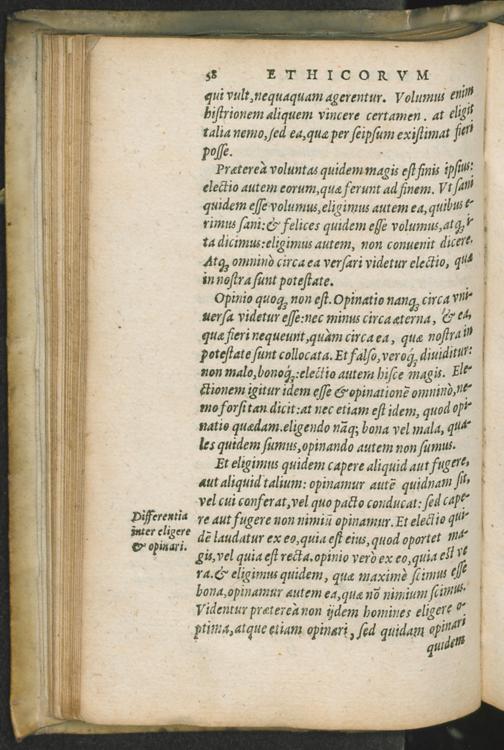 58 ETHICORVM
qui vult, nequaquam agerentur. Volumus enim
histrionem aliquem vincere certamen. at eligit
talia nemo, sed ea, quæ per seipsum existimat fieri
posse.
Prætereà voluntas quidem magis est finis ipsius:
electio autem eorum, quæ ferunt ad finem. Vt sani
quidem esse volumus, eligimus autem ea, quibus e-
rimus sani: & felices quidem esse volumus, atq; i-
ta dicimus: eligimus autem, non conuenit dicere.
Atq; omninò circa ea versari videtur electio, quæ
in nostra sunt potestate.
Opinio quoq; non est. Opinatio nanq; circa vni-
uersa videtur esse: nec minus circa æterna, & ea,
quæ fieri nequeunt, quàm circa ea, quæ nostra in
potestate sunt collocata. Et falso, veroq; diuiditur:
non malo, bonoq;: electio autem hisce magis. Ele-
ctionem igitur idem esse & opinationē omninò, ne-
mo forsitan dicit: at nec etiam est idem, quod opi-
natio quædam. eligendo nāq; bona vel mala, qua-
les quidem sumus, opinando autem non sumus.
Et eligimus quidem capere aliquid aut fugere,
aut aliquid talium: opinamur autē quidnam sit,
vel cui conferat, vel quo pacto conducat: sed cape-
Differentia
inter eligere
& opinari.
re aut fugere non nimiū opinamur. Et electio qui-
dē laudatur ex eo, quia est eius, quod oportet ma-
gis, vel quia est recta. opinio verò ex eo, quia est ve
ra. & eligimus quidem, quæ maximè scimus esse
bona, opinamur autem ea, quæ nō nimium scimus.
Videntur prætereà non ijdem homines eligere o-
ptima, atque etiam opinari, sed quidam opinari
quidem